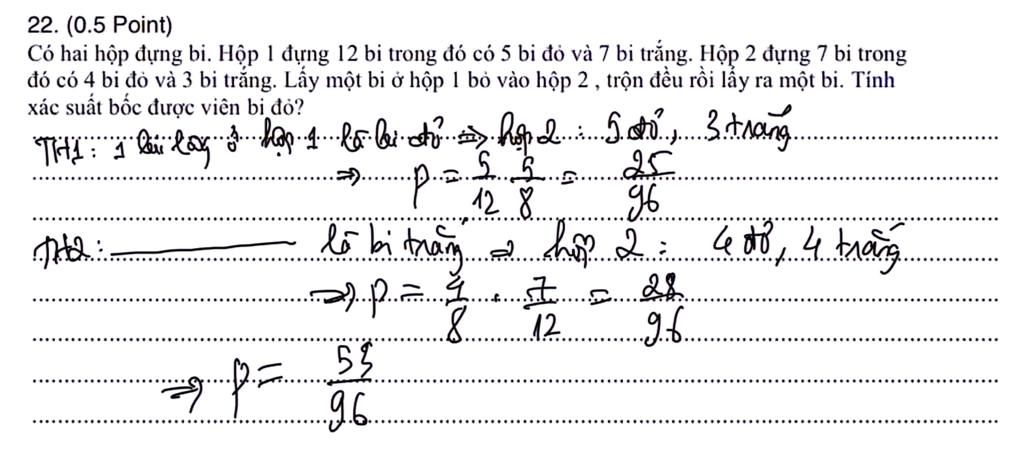 22. (0.5 Point)
Có hai hộp đựng bi. Hộp 1 đựng 12 bi trong đó có 5 bi đỏ và 7 bi trắng. Hộp 2 đựng 7 bi trong
đó có 4 bi đỏ và 3 bi trắng. Lấy một bi ở hộp 1 bỏ vào hộp 2 , trộn đều rồi lấy ra một bi. Tính
xác suất bốc được viên bi đỏ?
TH1: 1 bi lấy ở hộp 1 là bi đỏ => hộp 2 : 5 đỏ, 3 trắng
=> P = 5/12 . 5/8 = 25/96
TH2: ———— là bi trắng => hộp 2 : 4 đỏ, 4 trắng
=> P = 4/8 . 7/12 = 28/96
=> P = 53/96